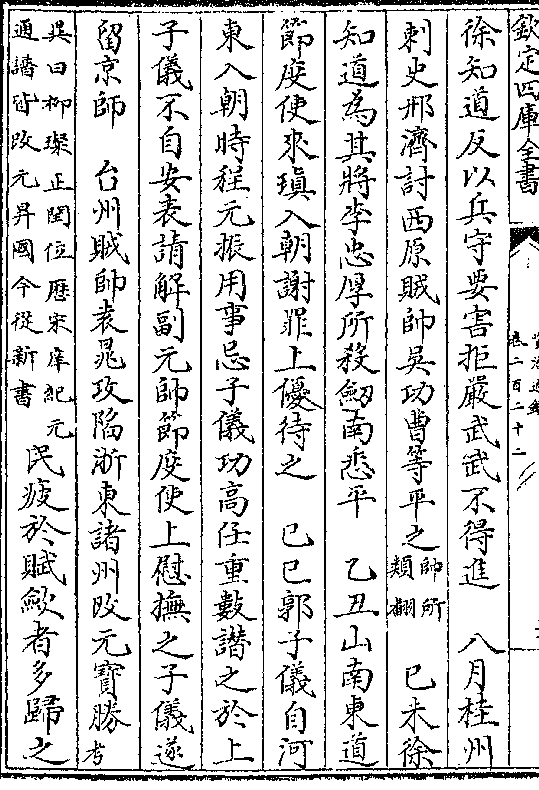 欽定四庫全書
資治通鑑
卷二百二十二
徐知道反以兵守要害拒嚴武武不得進　八月桂州
刺史邢濟討西原賊帥吳功曹等平之帥所類翻　己未徐
知道為其將李忠厚所殺劒南悉平　乙丑山南東道
節度使來瑱入朝謝罪上優待之　己巳郭子儀自河
東入朝時程元振用事忌子儀功高任重數譖之於上
子儀不自安表請解副元帥節度使上慰撫之子儀遂
留京師　台州賊帥袁晁攻陷浙東諸州改元寶勝考
異曰柳璨正閏位厯宋庠紀元通譜皆改元昇國今從新書民疲於賦斂者多歸之